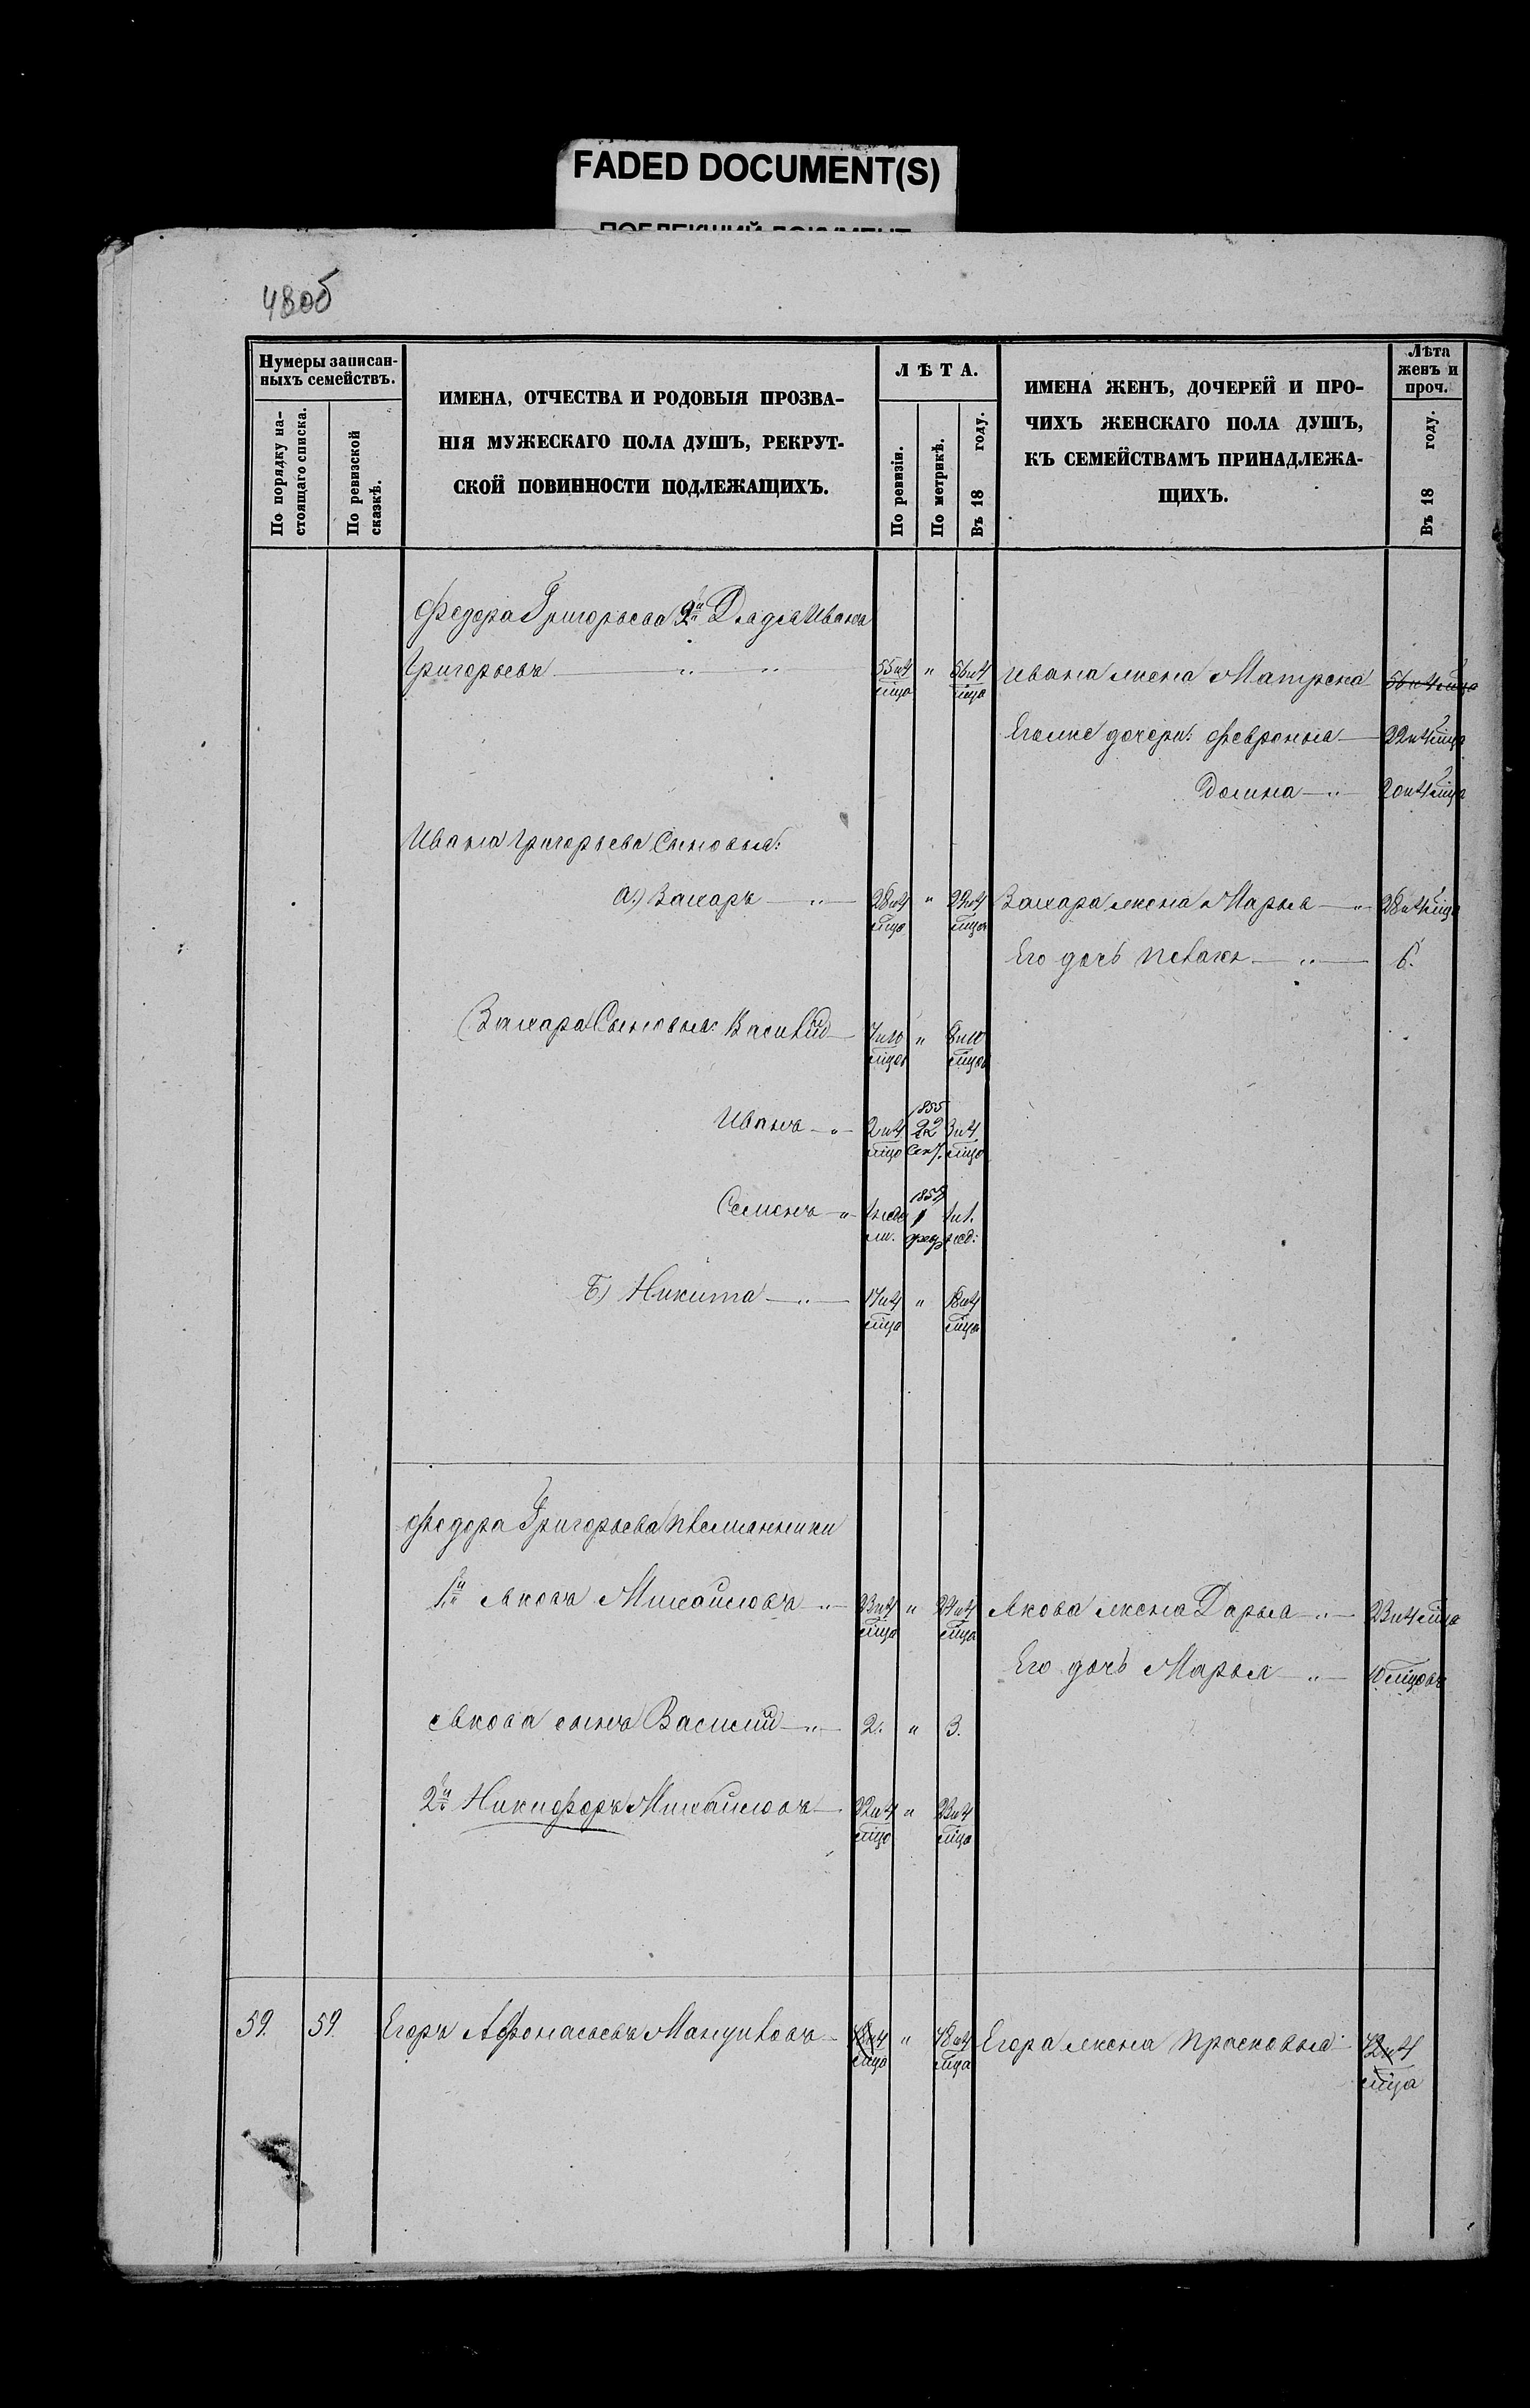 FADED DOCUMENT(S)
48об
Нумеры записан-
ныхъ семействъ.
По порядку на-
стоящаго списка.
По ревизской
сказкѣ.
ИМЕНА, ОТЧЕСТВА И РОДОВЫЯ ПРОЗВА-
НІЯ МУЖЕСКАГО ПОЛА ДУШЪ, РЕКРУТ-
СКОЙ ПОВИННОСТИ ПОДЛЕЖАЩИХЪ.
ЛѢТА.
По ревизіи.
По метрикѣ.
Въ 18 году.
ИМЕНА ЖЕНЪ, ДОЧЕРЕЙ И ПРО-
ЧИХЪ ЖЕНСКАГО ПОЛА ДУШЪ,
КЪ СЕМЕЙСТВАМЪ ПРИНАДЛЕЖА-
ЩИХЪ.
Лѣта
женъ и
проч.
Въ 18 году.
Федора Григорьева 2й Дядя Иванъ
Григорьевъ 55и4 мца " 56и4 мца Ивана жена Матрена 56и4 мца
Его же дочери: Февронья 22и4 мца
Домна 20и4 мца
Ивана Григорьева Сыновья:
а.) Захаръ 28и4 мца " 29и4 мца Захара жена Марья 28и4 мца
Его дочь 6.
Захара Сыновья: Василій 7и10 мцов " 8и10 мцов
Иванъ 2и4 мца 1855 Сен. 3и4 мца
Семенъ 1 фев 1и1. нед:
Б.) Никита 17и4 мца " 18и4 мца
Федора Григорьева племянники
1й Яковъ Михайловъ 23и4 мца " 24и4 мца Якова жена Дарья 23и4 мца
Его дочь Марья 10 мцовъ
Якова сынъ Василій 2. " 3.
2й Никифоръ Михайловъ 22и4 мца " 23и4 мца
59. 59. Егоръ Афонасьевъ " 48и4 мца Егора жена Прасковья 42и4
мца